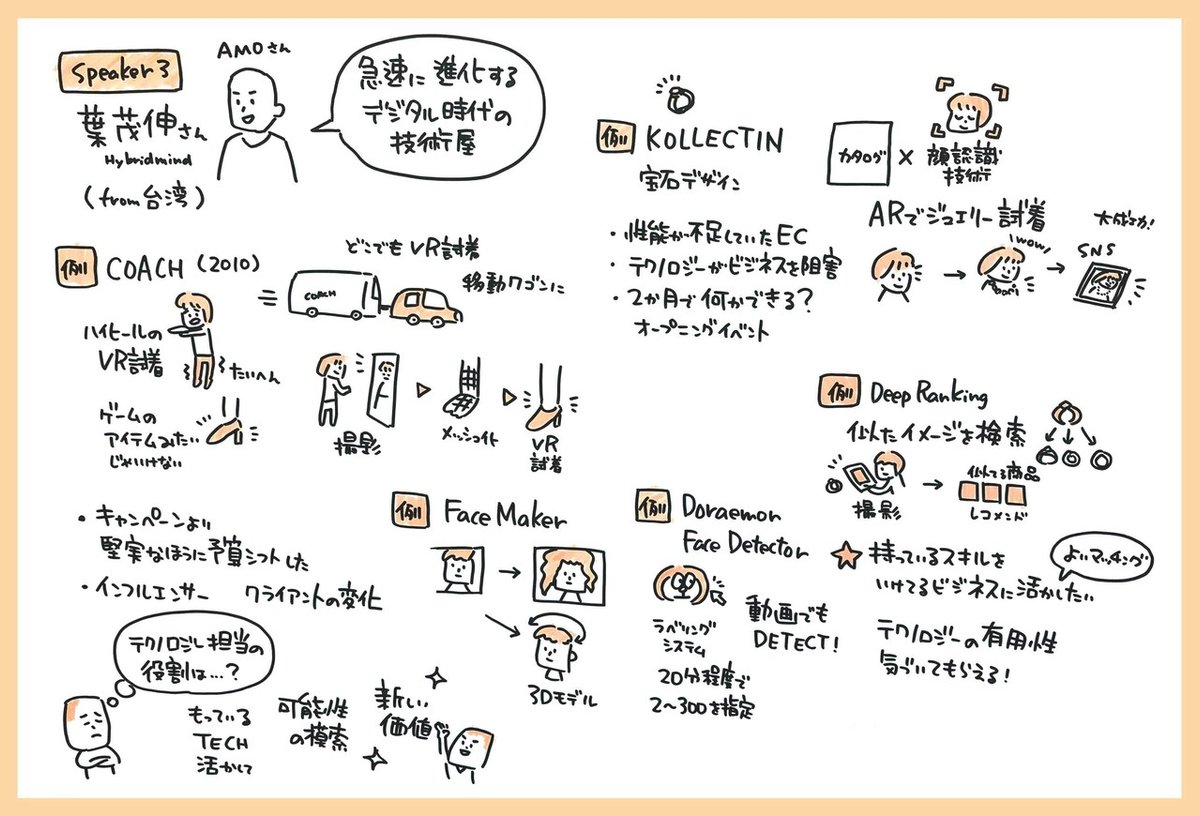 Speaker 3
葉 茂伸さん
Hybridmind
(from台湾)
AMOさん
急速に進化する
デジタル時代の
技術屋
例 COACH (2010)
ハイヒールの
VR試着
たいへん
ゲームの
アイテムみたい
じゃいけない
どこでもVR試着
移動ワゴンに
COACH
撮影
メッシュ化
VR
試着
・キャンペーンより
堅実なほうに予算シフトした
・インフルエンサー クライアントの変化
テクノロジー担当の
役割は…?
もっている
TECH
活かして
可能性
の模索
新しい
価値
例 Face Maker
3Dモデル
例 KOLLECTIN
宝石デザイン
カタログ × 顔認識
技術
・性能が不足していたEC
・テクノロジーがビジネスを阻害
・2か月で何ができる?
オープニングイベント
ARでジュエリー試着
wow!
SNS
大成功!
例 Deep Ranking
似たイメージを検索
撮影
似てる商品
レコメンド
例 Doraemon
Face Detector
ラベリング
システム
20分程度で
2〜300を指定
動画でも
DETECT!
★持っているスキルを
いけてるビジネスに活かしたい
よいマッチング
テクノロジーの有用性
気づいてもらえる!